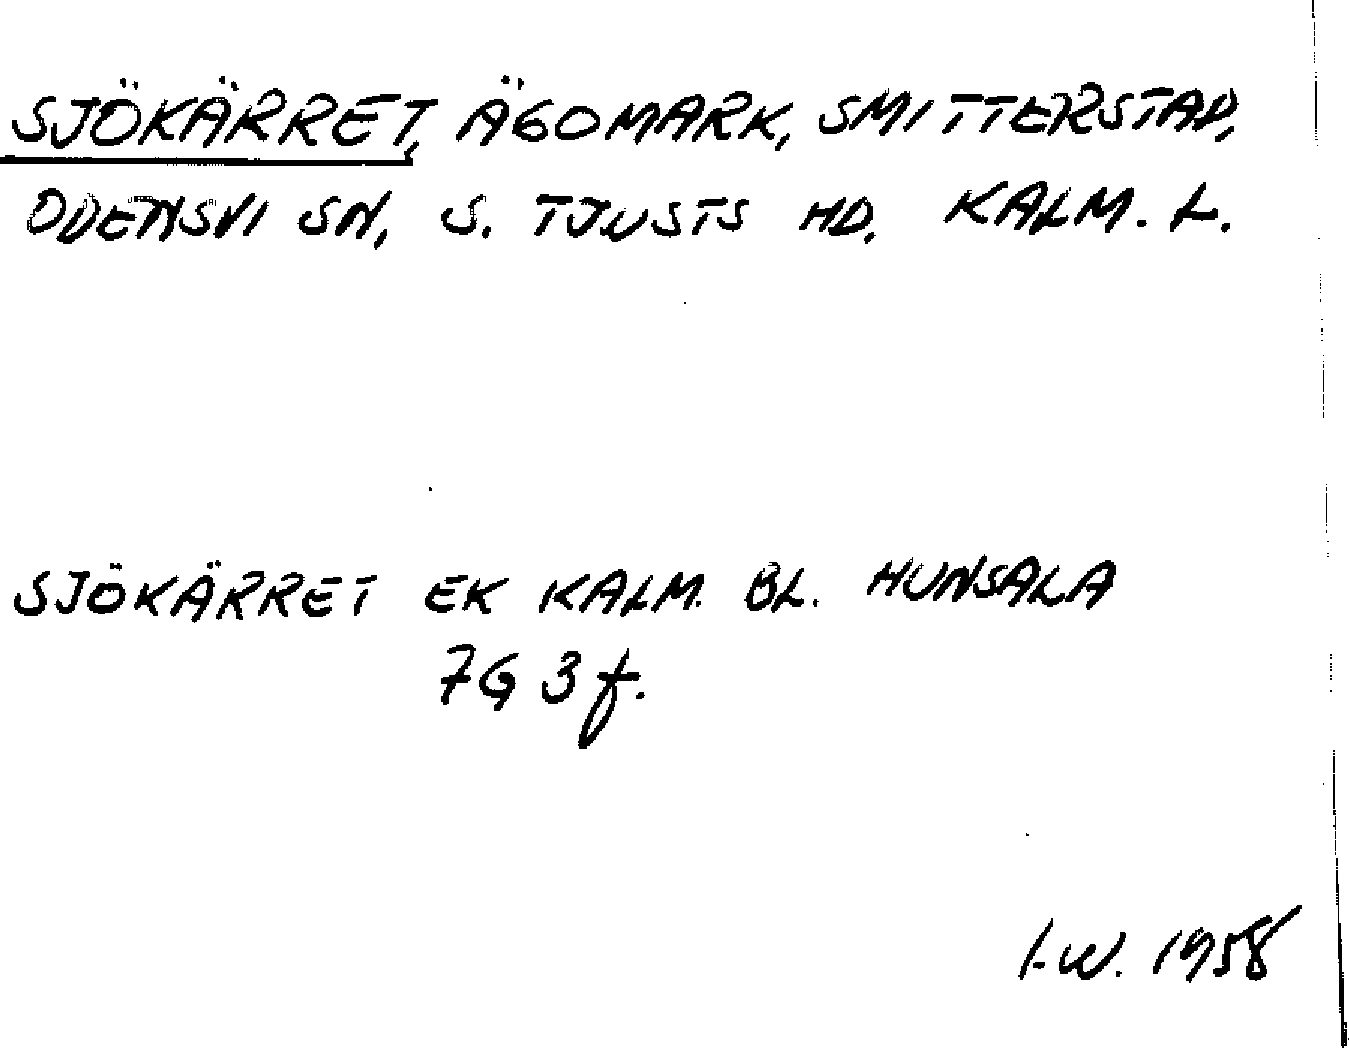 SJÖKÄRRET, ÄGOMARK, SMITTERSTAD,
ODENSVI SN, S. TJUSTS HD, KALM. L.
SJÖKÄRRET EK KALM. BL. HUNSALA
7G 3f.
I.W. 1958